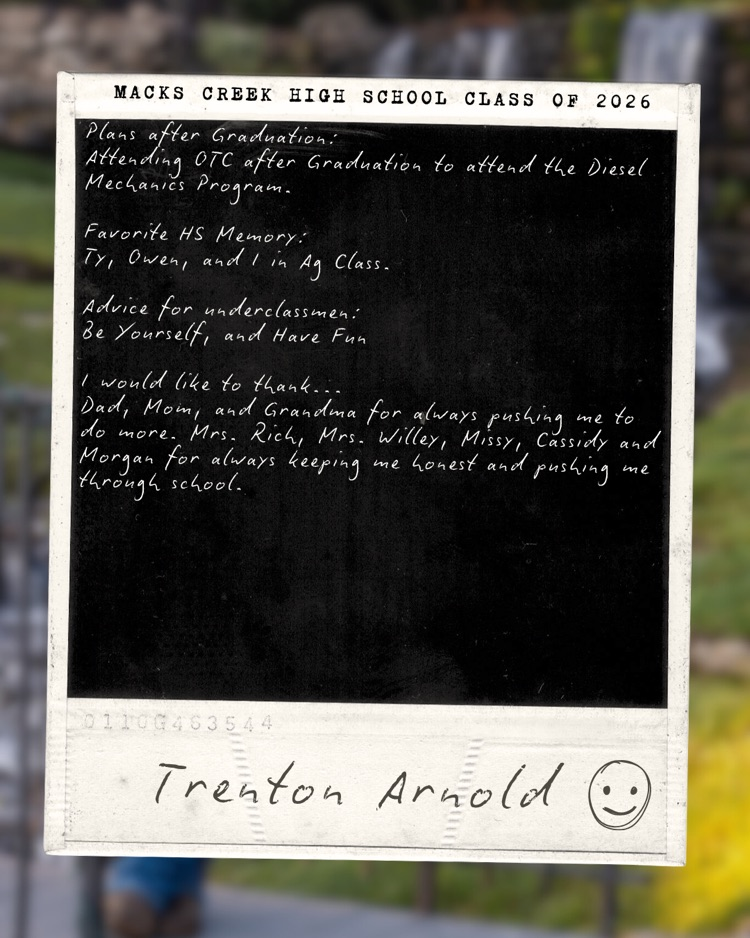 MACKS CREEK HIGH SCHOOL CLASS OF 2026
Plans after Graduation:
Attending OTC after Graduation to attend the Diesel
Mechanics Program.
Favorite HS Memory:
Ty, Owen, and I in Ag Class.
Advice for underclassmen:
Be Yourself, and Have Fun
I would like to thank...
Dad, Mom, and Grandma for always pushing me to
do more. Mrs. Rich, Mrs. Willey, Missy, Cassidy and
Morgan for always keeping me honest and pushing me
through school.
0110G463544
Trenton Arnold